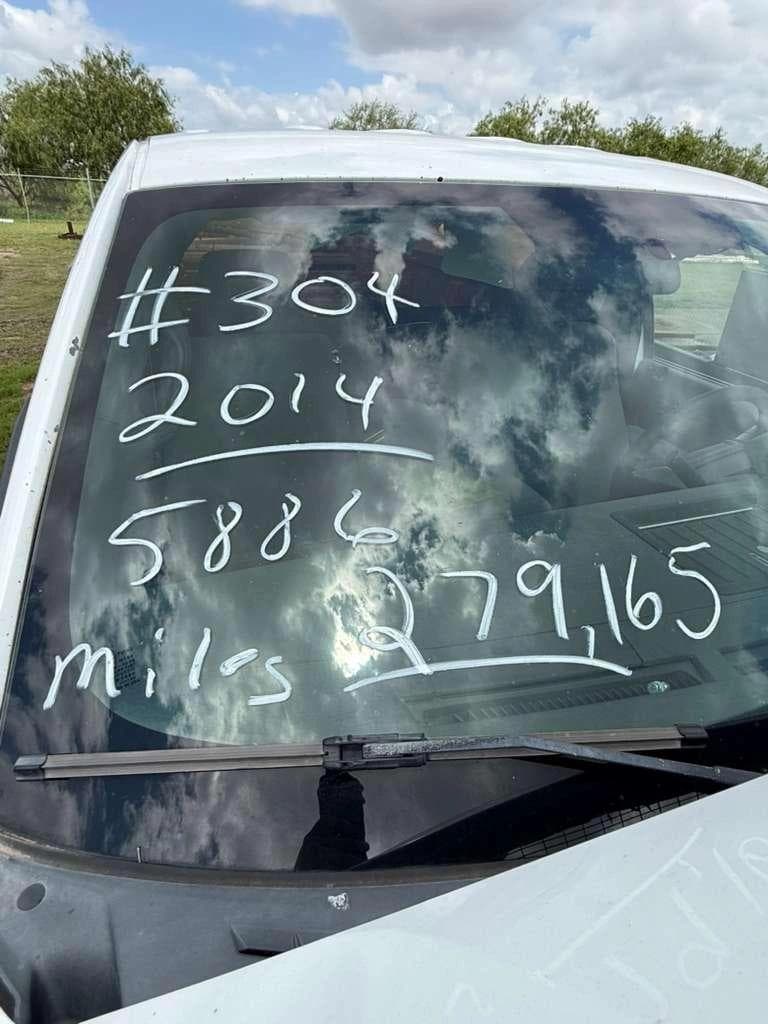 #304
2014
5886
miles 279,165